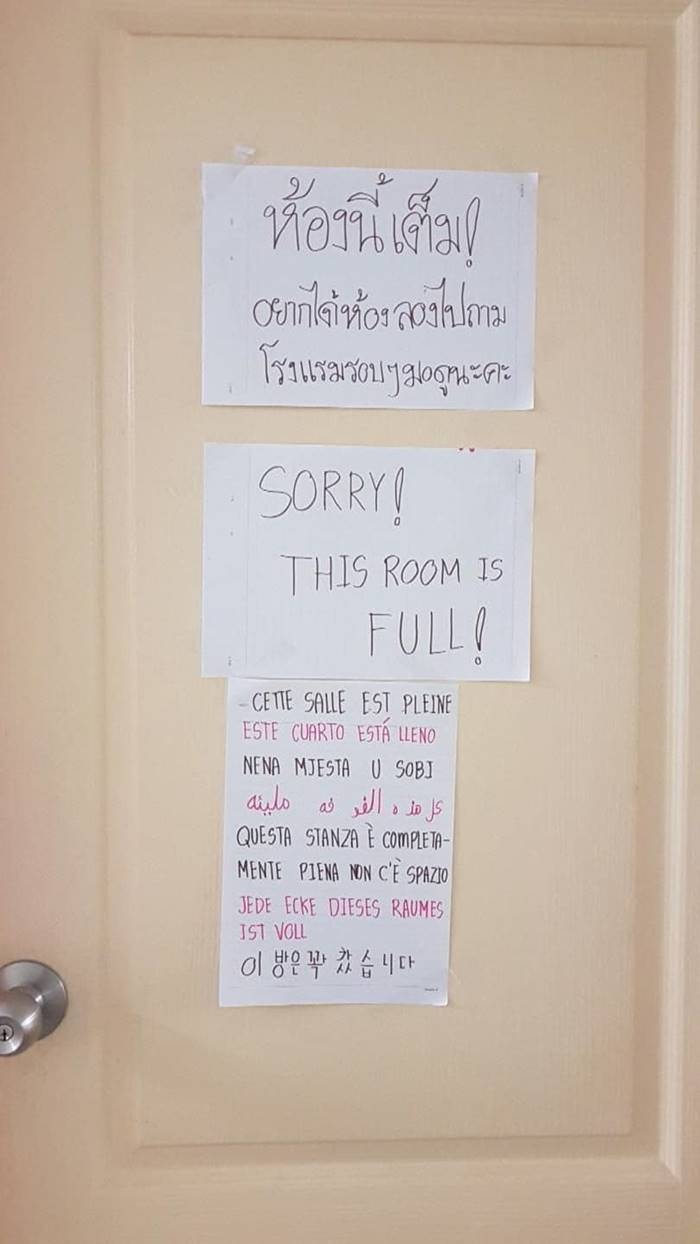 ห้องนี้เต็ม!
อยากได้ห้อง ลองไปถาม
โรงแรมรอบๆมอดูนะคะ
SORRY!
THIS ROOM IS
FULL!
- CETTE SALLE EST PLEINE
ESTE CUARTO ESTÁ LLENO
NENA MJESTA U SOBI
كل هذه الغر فه مليئه
QUESTA STANZA È COMPLETA-
MENTE PIENA NON C'È SPAZIO
JEDE ECKE DIESES RAUMES
IST VOLL
이 방은 꽉 찼습니다